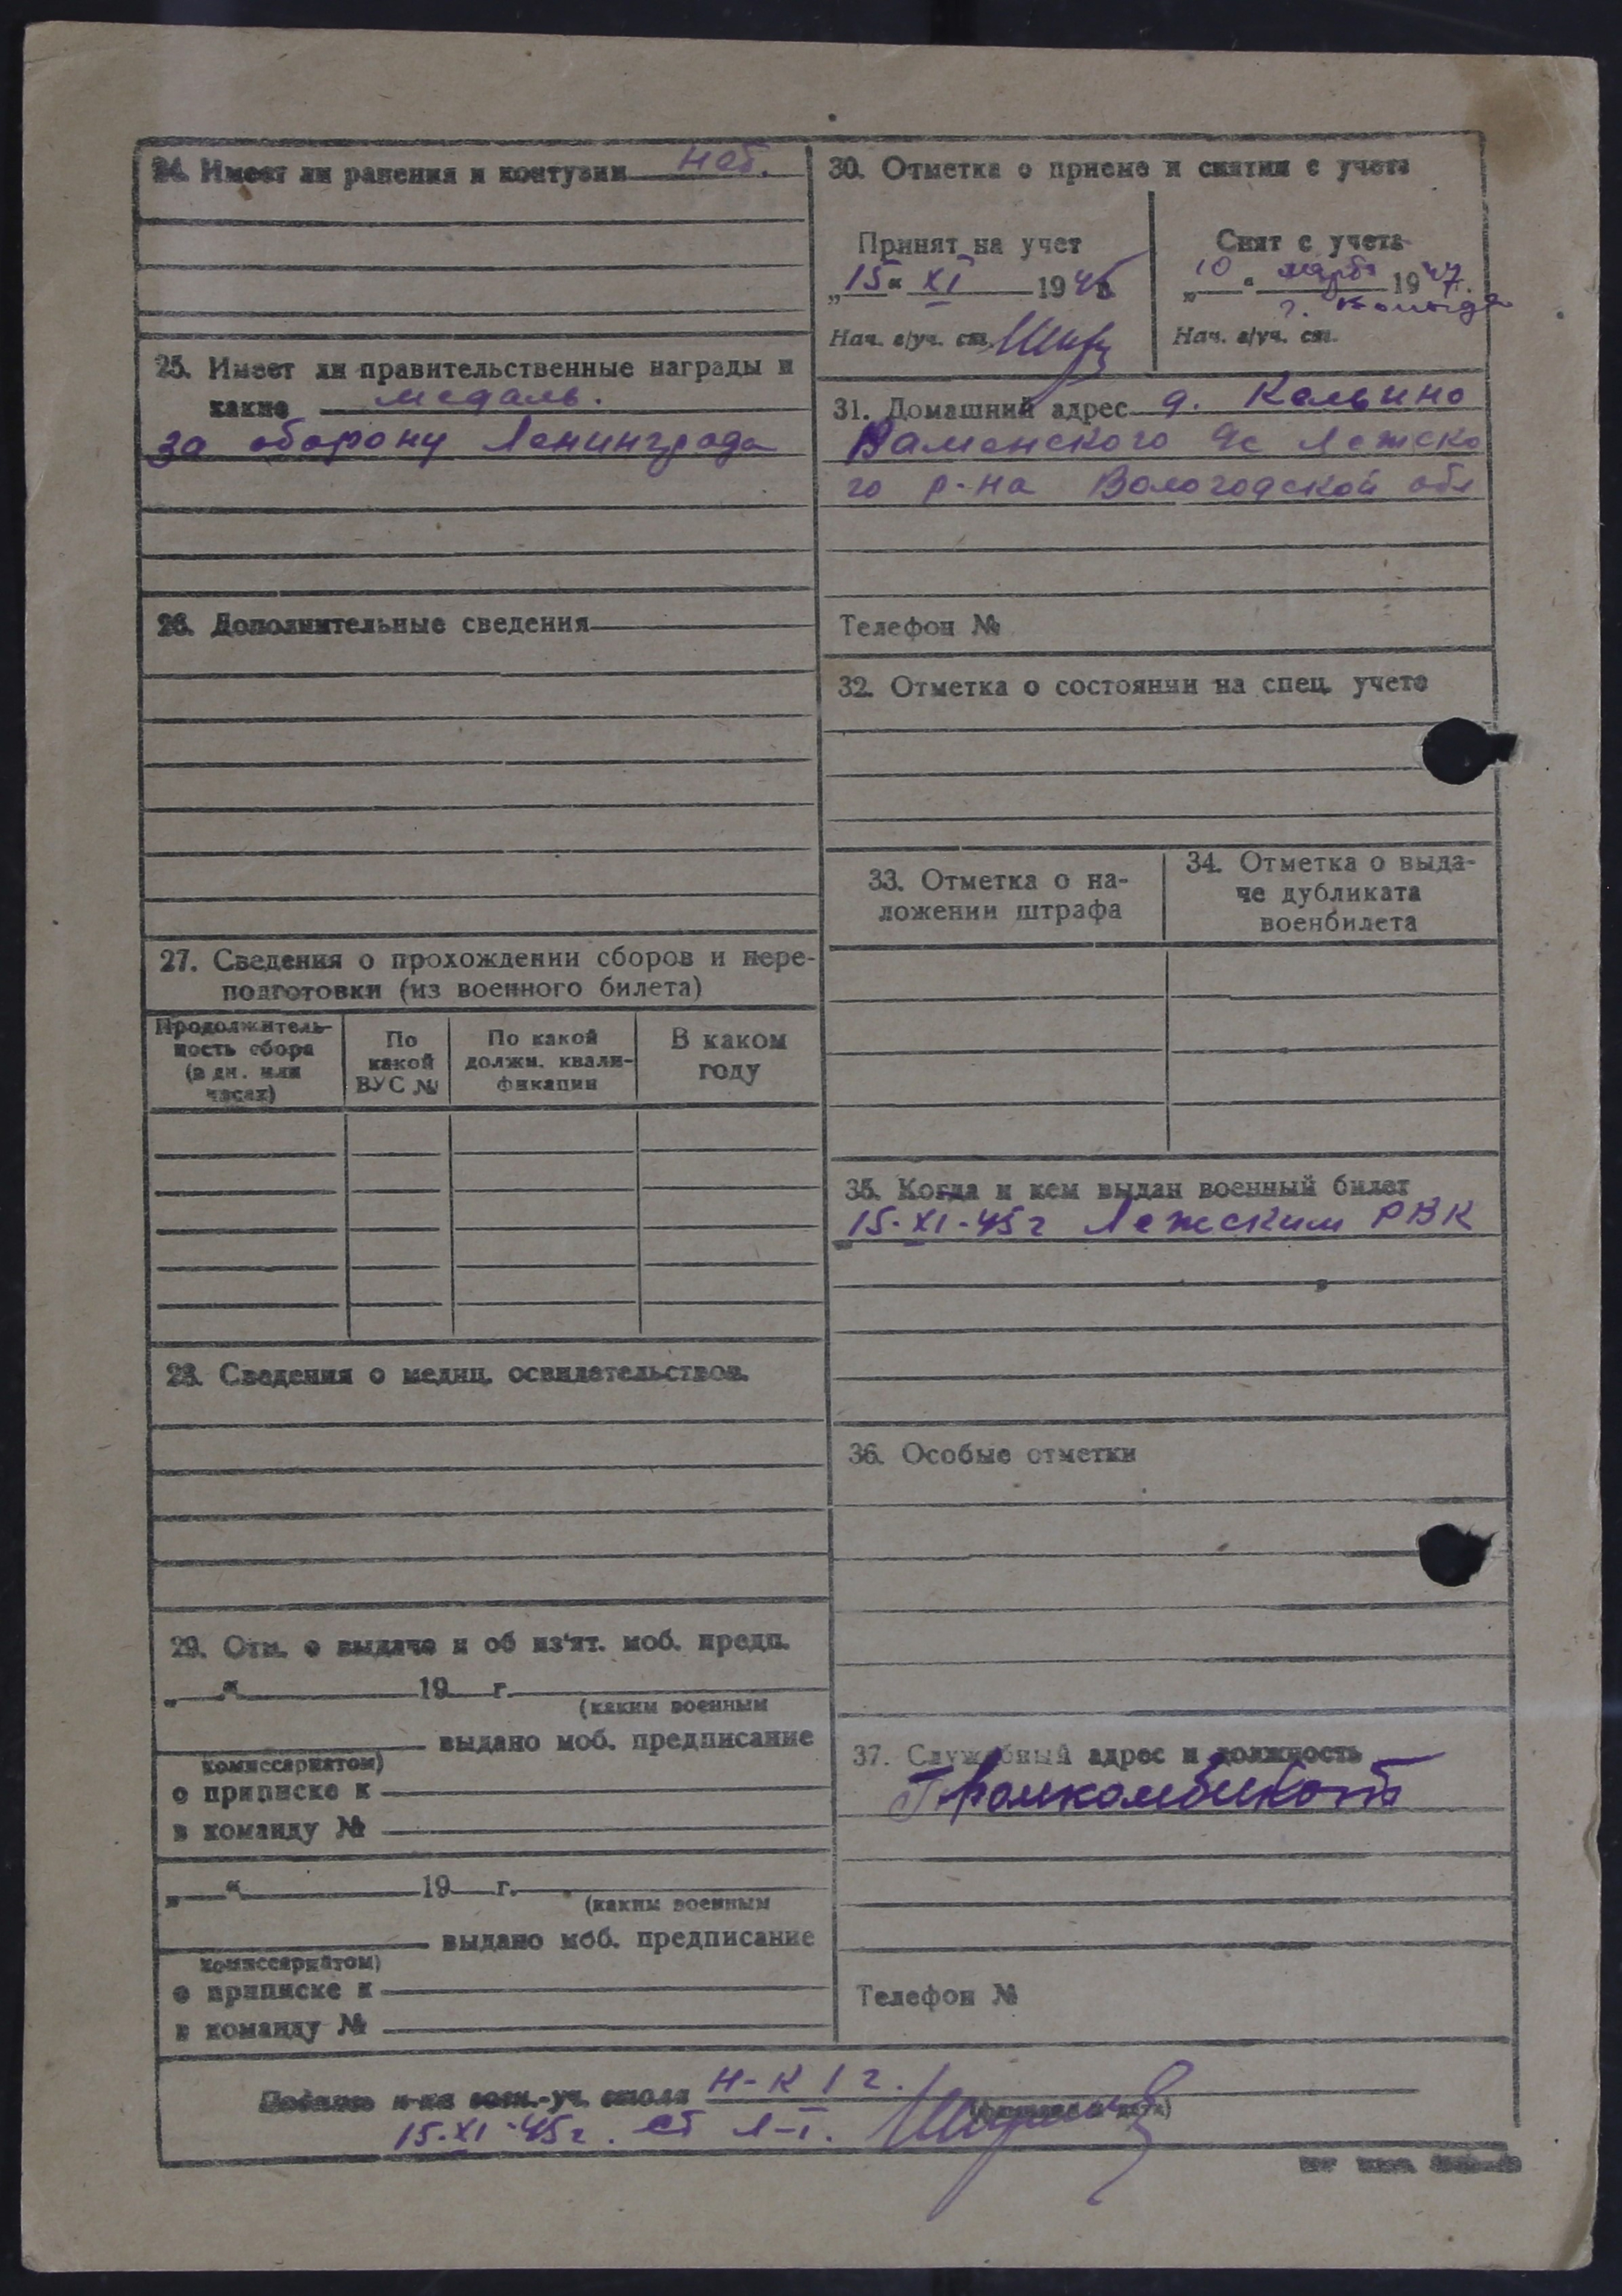 24. Имеет ли ранения и контузии нет.
25. Имеет ли правительственные награды и
какие медаль.
за оборону Ленинграда
26. Дополнительные сведения
27. Сведения о прохождении сборов и пере-
подготовки (из военного билета)
Продолжитель-
ность сбора
(в дн. или
часах)
По
какой
ВУС №
По какой
должн. квали-
фикации
В каком
году
28. Сведения о медиц. освидетельствов.
29. Отм. о выдаче и об из'ят. моб. предп.
„ “ 19 г.
(каким военным
выдано моб. предписание
комиссариатом)
о приписке к
в команду №
„ “ 19 г.
(каким военным
выдано моб. предписание
комиссариатом)
о приписке к
в команду №
30. Отметка о приеме и снятии с учета
Принят на учет
„15“ XI 1945
Нач. в/уч. ст.
Снят с учета
„10“ марта 1947.
г.
Нач. в/уч. ст.
31. Домашний адрес д.
Ваменского с Лежско
го р-на Вологодской обл
Телефон №
32. Отметка о состоянии на спец. учете
33. Отметка о на-
ложении штрафа
34. Отметка о выда-
че дубликата
военбилета
35. Когда и кем выдан военный билет
15-XI-45г Лежским РВК
36. Особые отметки
37. Служебный адрес и должность
Промкомбинат
Телефон №
Подпись н-ка воен.-уч. стола Н-К 1 г.
15-XI-45г. ст л-т.